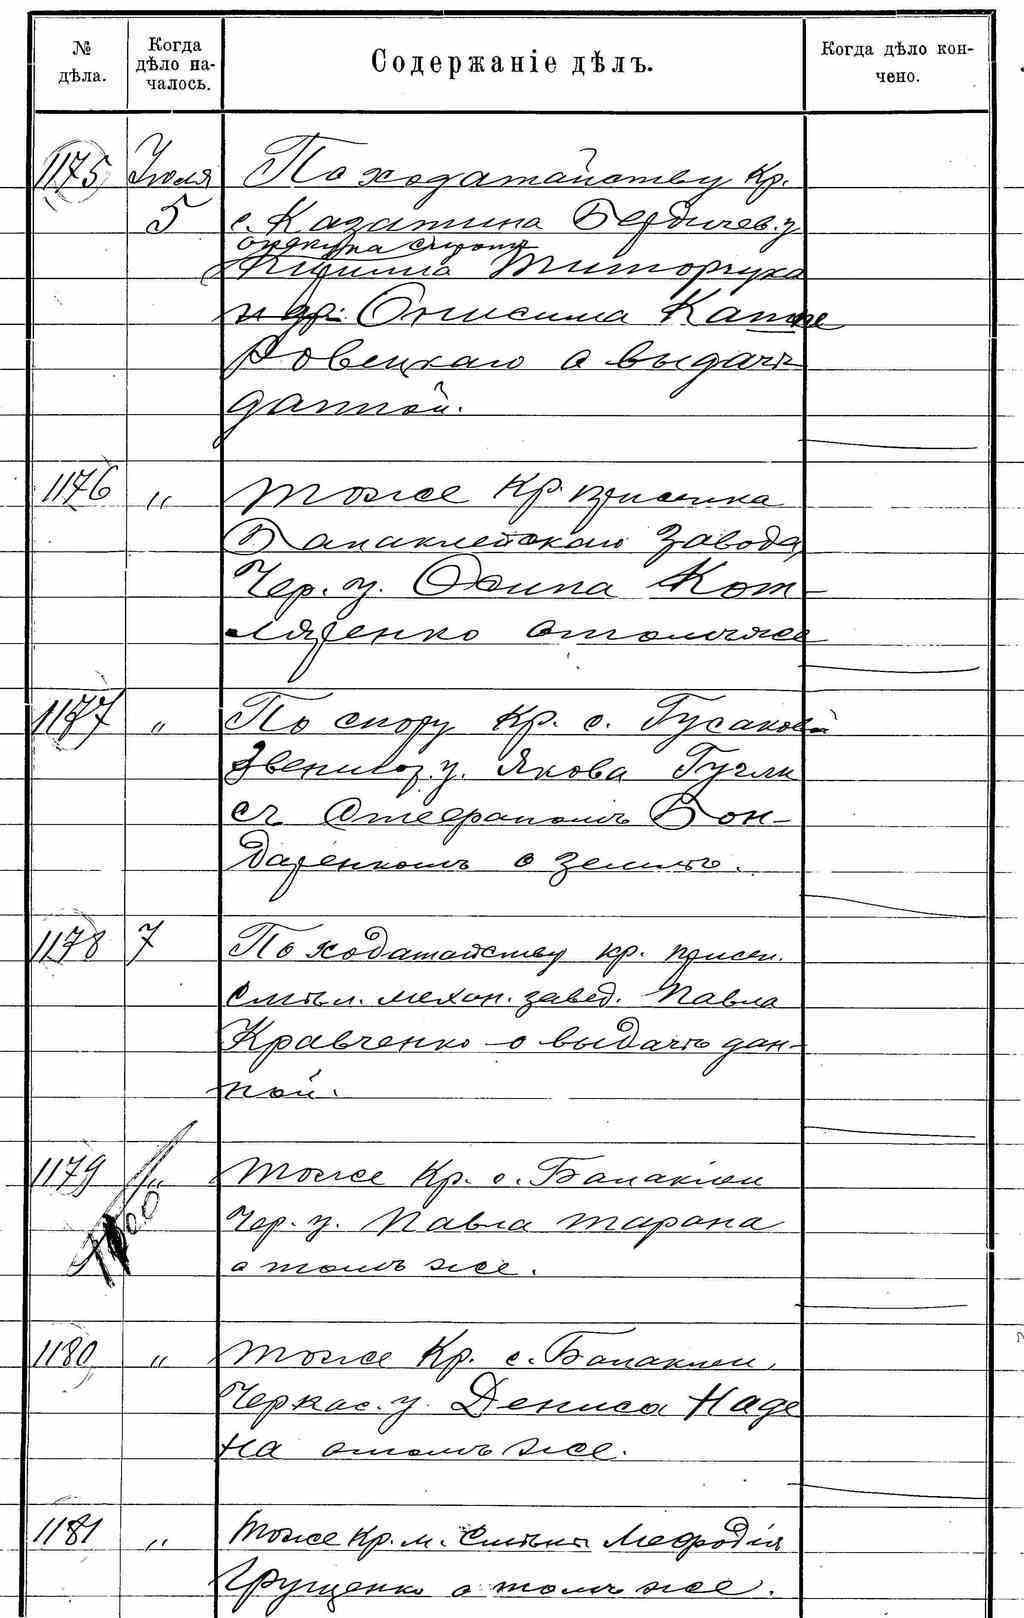 № дѣла.
Когда дѣло на-
чалось.
Содержаніе дѣлъ.
Когда дѣло кон-
чено.
1175 Іюля По ходатайству кр.
5 с. Казатина Бердичев. у
опекуна сирот
Кирилла Титорчука
и др. Онисима Капие
Ровецкаго о выдачѣ
данной.
1176 „ тоже кр. приселка
Балаклейскаго завода,
Чер. у. Осипа Кот-
ляренко отомъже
1177 „ По спору кр. с. Гусаковой
Звенигор. у. Якова Гугли
съ Стефаномъ Бон-
даренкомъ о землѣ.
1178 7 По ходатайству кр. присел.
Смѣл. механ. завед. Павла
Кравченко о выдачѣ дан-
ной.
1179 „ тоже кр. с. Балаклеи
Чер. у. Павла Тарана
о томъ же.
1180 „ тоже кр. с. Балаклеи,
Черкас. у. Дениса Наде
на отомъ же.
1181 „ Тоже кр. м. Смѣлы Мефодія
Грущенко о томъ же.